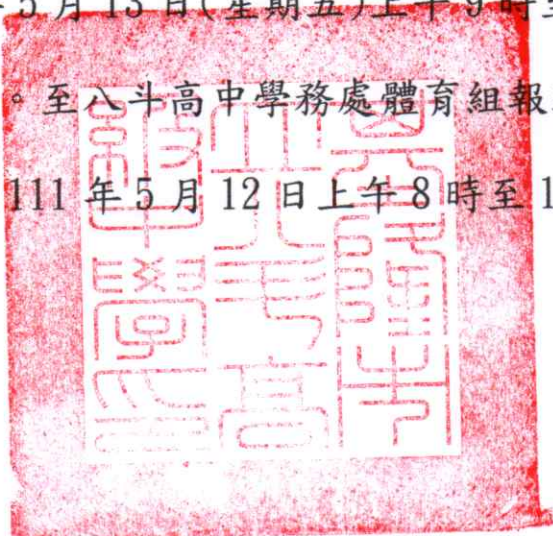 5月13日(星期五)上午9時至
。至八斗高中學務處體育組報
111年5月12日上午8時至1
基隆市
立八斗高
級中學印